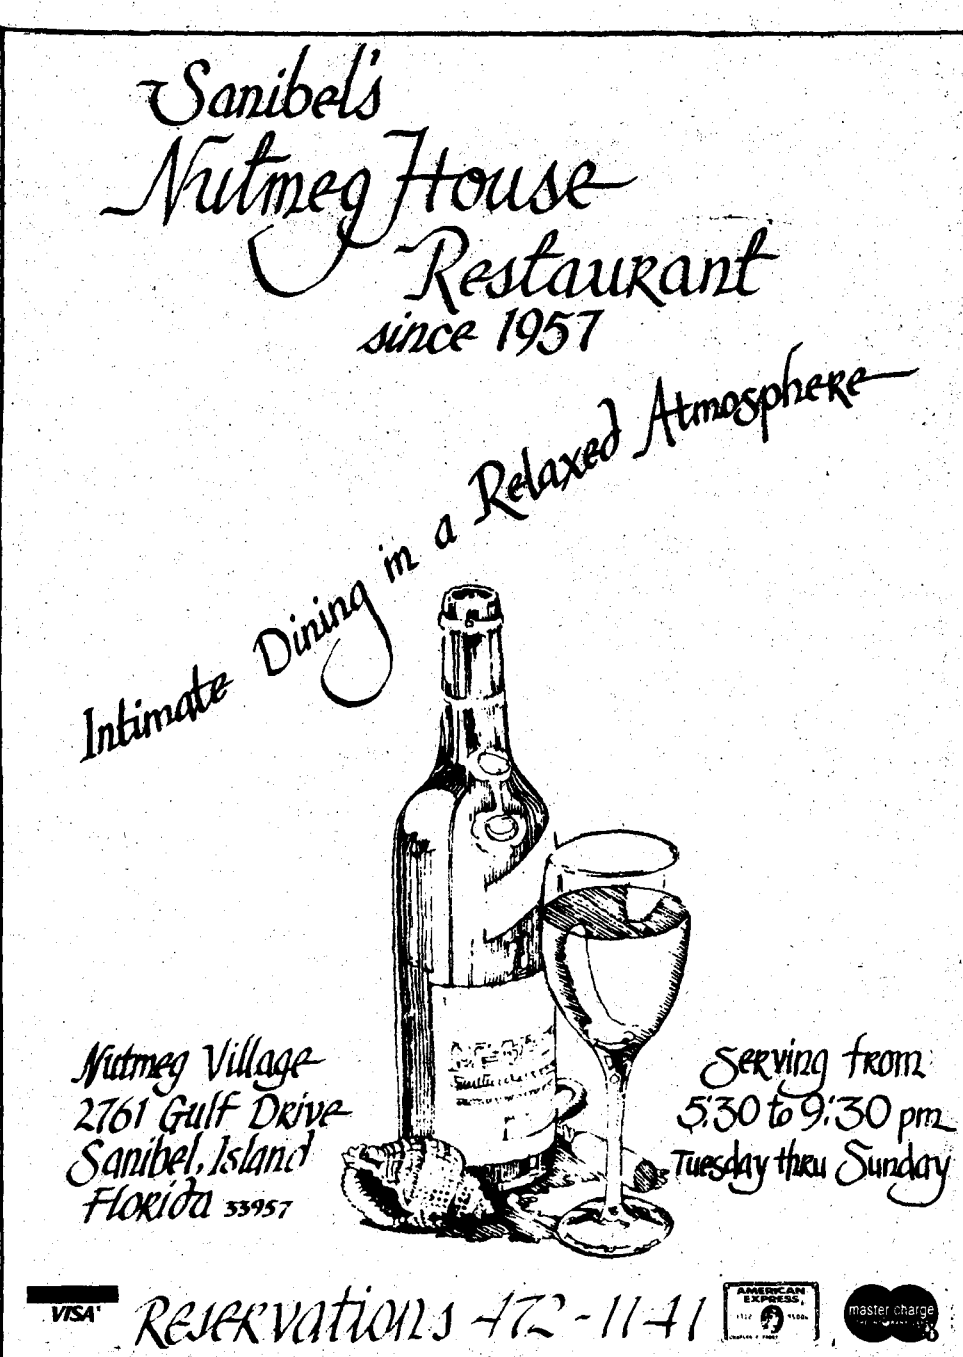 Sanibel's
Nutmeg House
Restaurant
since 1957
Intimate Dining in a Relaxed Atmosphere
Nutmeg Village
2761 Gulf Drive
Sanibel, Island
Florida 33957
Serving from
5:30 to 9:30 pm
Tuesday thru Sunday
VISA
Reservations 472-1141
AMERICAN
EXPRESS
master charge